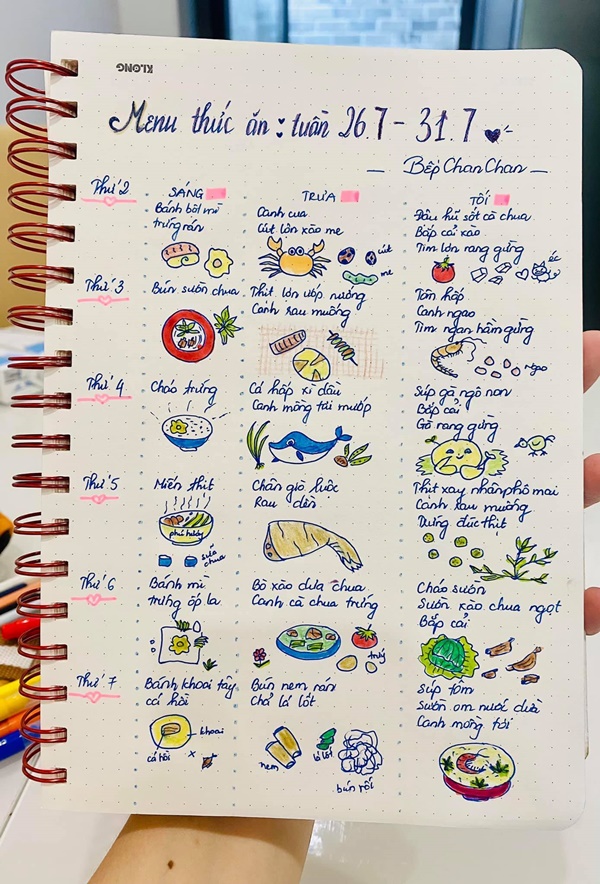 KLONG
Menu thức ăn : tuần 26.7 - 31.7
Bếp Chan Chan
SÁNG
TRƯA
TỐI
Thứ 2
Bánh bột mì
trứng rán
Canh cua
Cút lộn xào me
cút
me
Đậu hũ sốt cà chua
Bắp cải xào
Tim lợn rang gừng
éc
Thứ 3
Bún sườn chua
Thịt lợn ướp nướng
Canh rau muống
Tôm hấp
Canh ngao
Tim ngan hầm gừng
Ngao
Thứ 4
Cháo trứng
Cá hấp xì dầu
Canh mồng tơi mướp
Súp gà ngô non
Bắp cải
Gà rang gừng
Thứ 5
Miến thịt
sữa chua
Chân giò luộc
Rau dền
Thịt xay nhân phô mai
Canh rau muống
Trứng đúc thịt
Thứ 6
Bánh mì
trứng ốp la
Bò xào dưa chua
Canh cà chua trứng
trứg
Cháo sườn
Sườn xào chua ngọt
Bắp cải
Thứ 7
Bánh khoai tây
cá hồi
khoai
cá hồi
x
Bún nem rán
Chả lá lốt
nem
lá lốt
bún rối
Súp tôm
Sườn om nước dừa
Canh mồng tơi